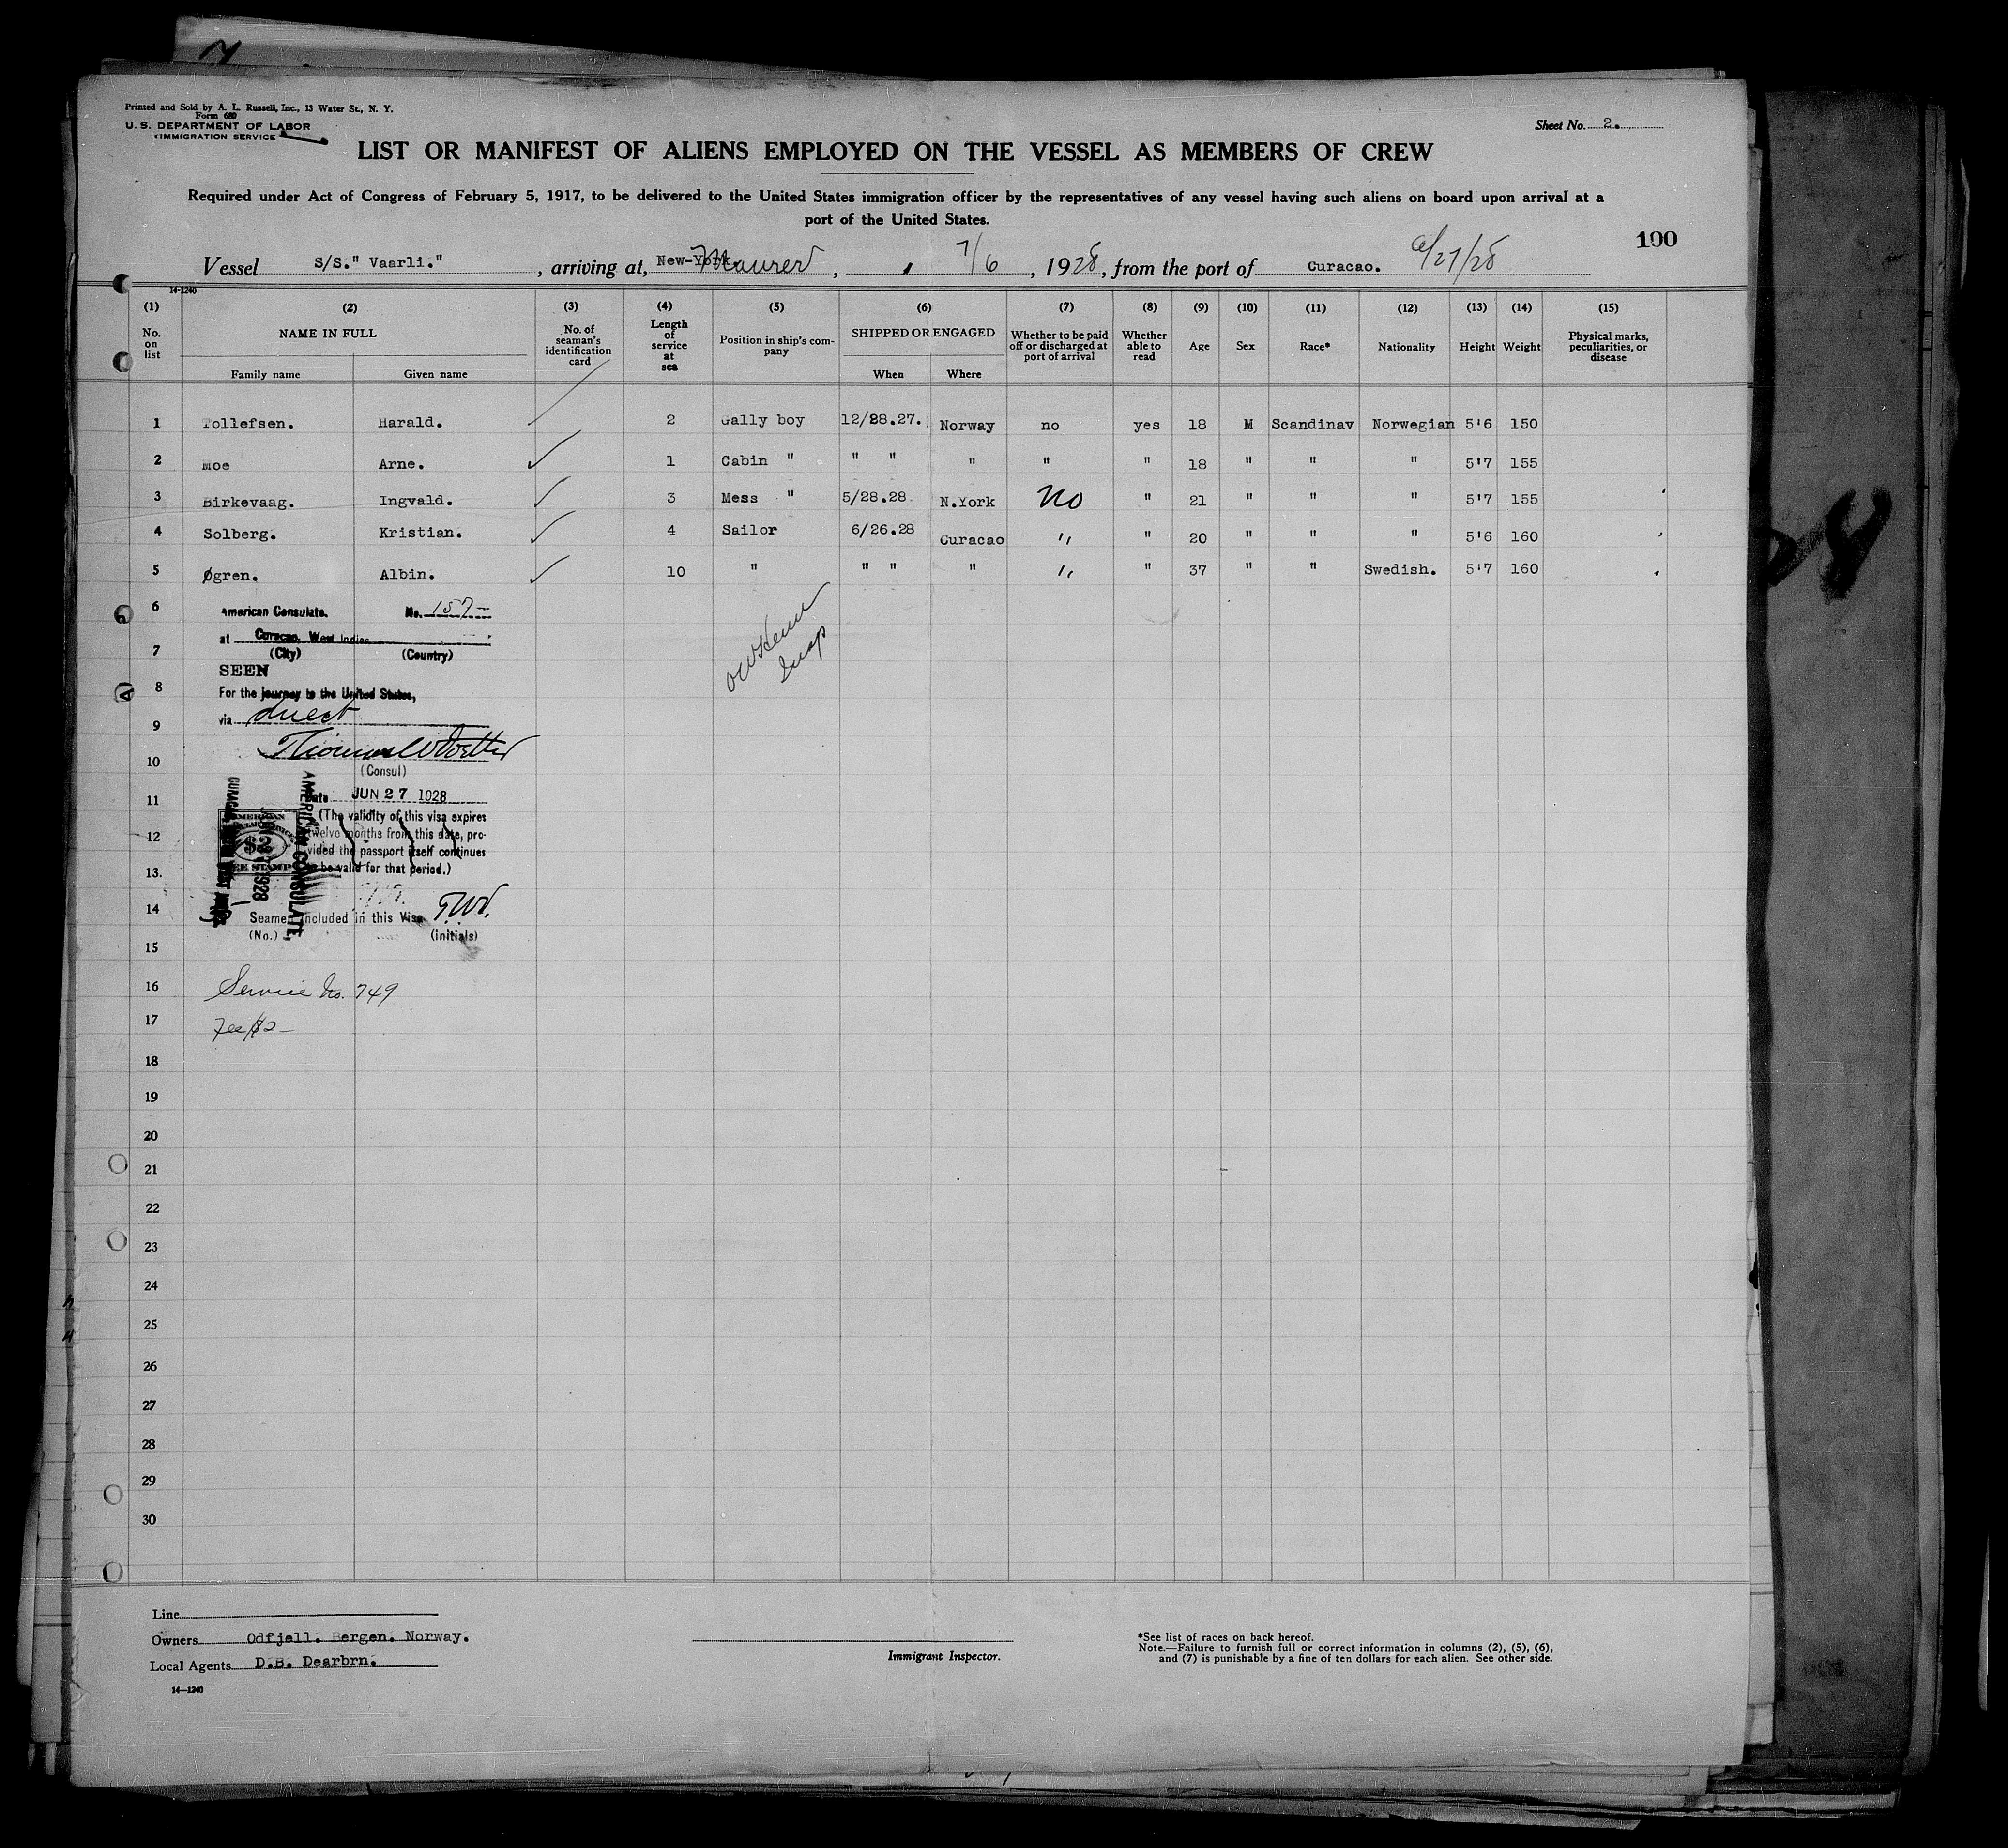 Printed and Sold by A. L. Russell, Inc., 13 Water St., N. Y.
Form 680
U. S. DEPARTMENT OF LABOR
IMMIGRATION SERVICE
Sheet No. 2.
LIST OR MANIFEST OF ALIENS EMPLOYED ON THE VESSEL AS MEMBERS OF CREW
Required under Act of Congress of February 5, 1917, to be delivered to the United States immigration officer by the representatives of any vessel having such aliens on board upon arrival at a
port of the United States.
100
Vessel S/S." Vaarli." , arriving at, New-York. Maurer , 7/6 , 1928, from the port of Curacao. 6/27/28
14-1240
(1) (2) (3) (4) (5) (6) (7) (8) (9) (10) (11) (12) (13) (14) (15)
No. on list NAME IN FULL No. of seaman's identification card Length of service at sea Position in ship's company SHIPPED OR ENGAGED Whether to be paid off or discharged at port of arrival Whether able to read Age Sex Race* Nationality Height Weight Physical marks, peculiarities, or disease
Family name Given name When Where
1 Tollefsen. Harald. 2 Gally boy 12/28.27. Norway no yes 18 M Scandinav Norwegian 5'6 150
2 Moe Arne. 1 Cabin " " " " " " 18 " " " 5'7 155
3 Birkevaag. Ingvald. 3 Mess " 5/28.28 N.York No " 21 " " " 5'7 155
4 Solberg. Kristian. 4 Sailor 6/26.28 Curacao " " 20 " " " 5'6 160
5 Øgren. Albin. 10 " " " " " " 37 " " Swedish. 5'7 160
6 American Consulate. No. 157-
at Curacao, West Indies
7 (City) (Country)
SEEN
8 For the journey to the United States,
via direct
9
10
(Consul)
11 Date JUN 27 1928
(The validity of this visa expires
12 twelve months from this date, pro-
vided the passport itself continues
13. to be valid for that period.)
AMERICAN CONSULATE,
14 Seamen included in this Visa T.W.V.
(No.) (initials)
15
16 Service No. 749
17 Fee $2-
18
19
20
21
22
23
24
25
26
27
28
29
30
Line
Owners Odfjell. Bergen. Norway.
Local Agents D.B. Dearbrn.
14-1240
Immigrant Inspector.
*See list of races on back hereof.
Note.—Failure to furnish full or correct information in columns (2), (5), (6),
and (7) is punishable by a fine of ten dollars for each alien. See other side.